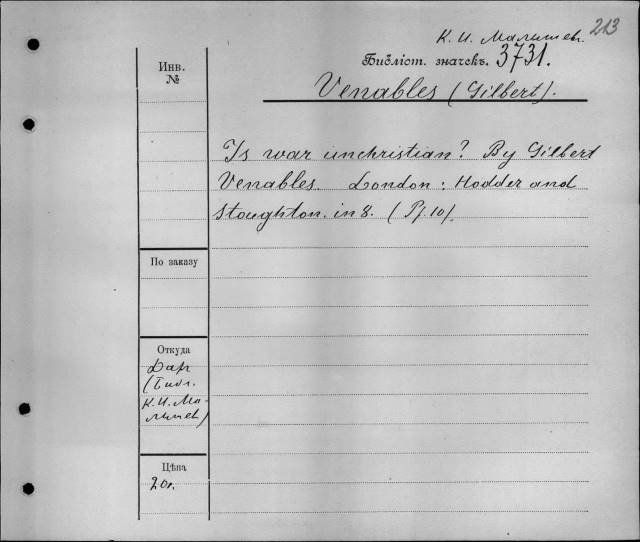 213
К. И. Малышев.
Библіот. значекъ. 3731.
Venables (Gilbert).
Инв.
№
Is war unchristian? By Gilbert
Venables. London: Hodder and
Stoughton. in 8. (Pf. 10).
По заказу
Откуда
Дар
(Библ.
К. И. Ма-
лышев)
Цѣна
20к.